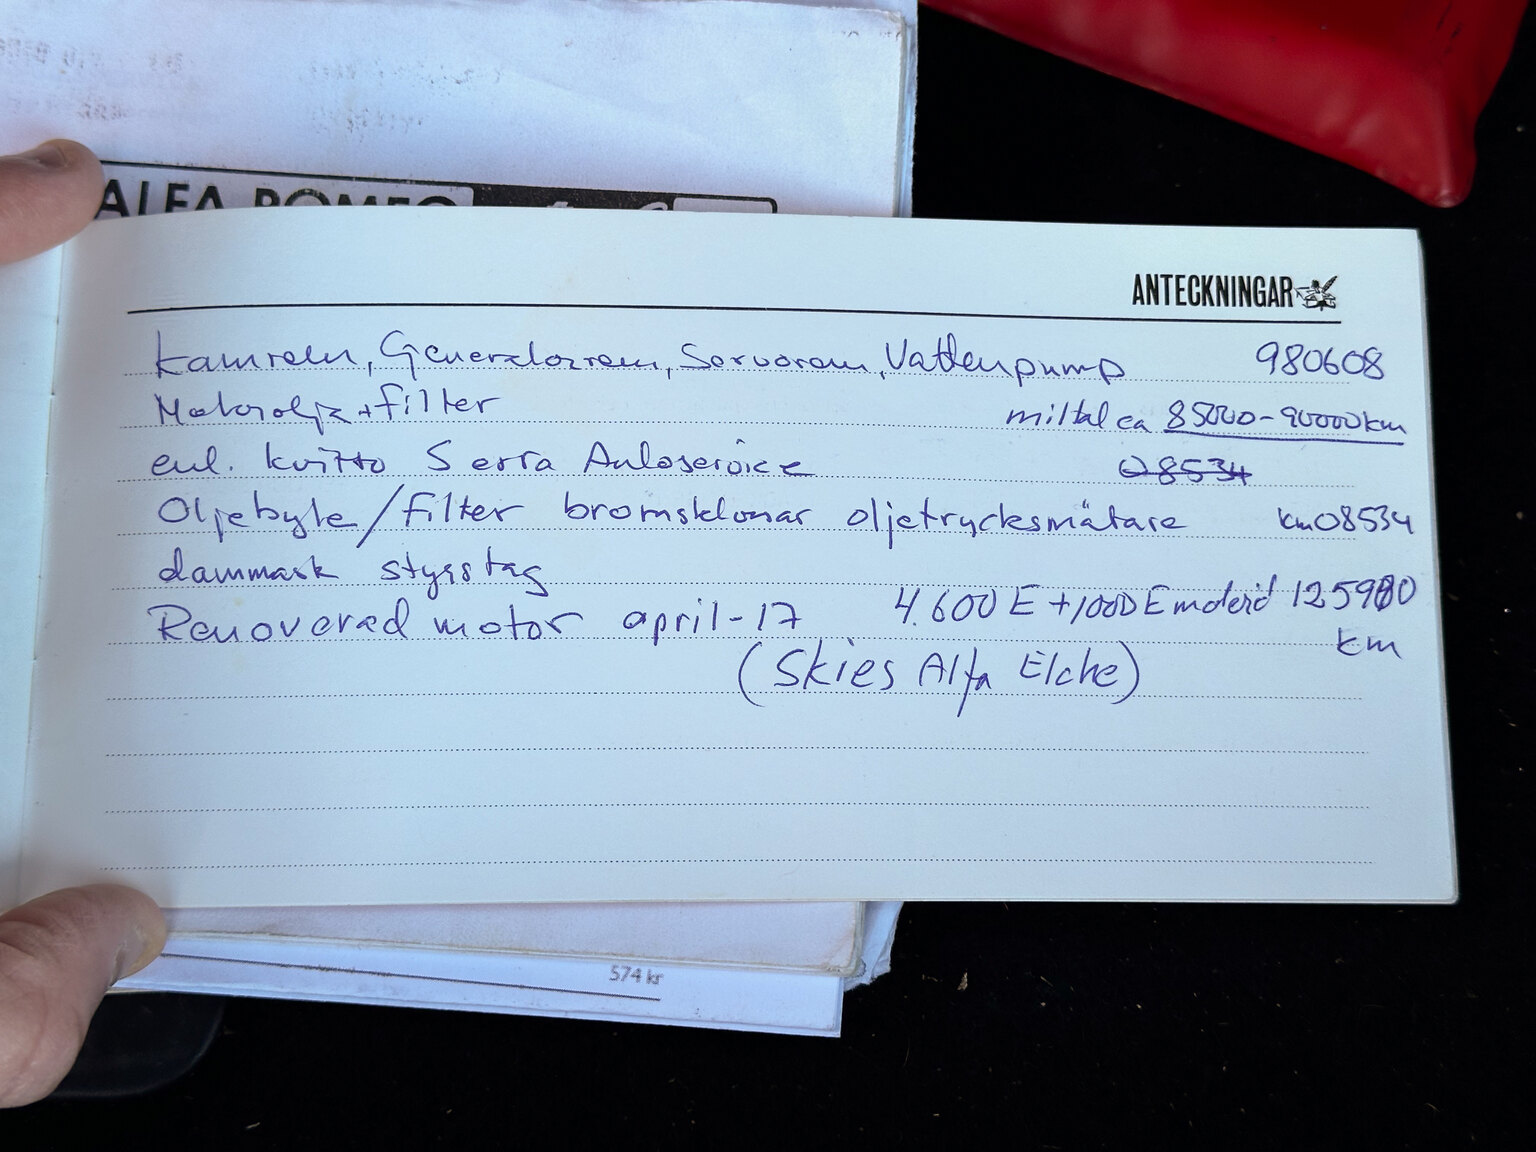 ALFA ROMEO
ANTECKNINGAR
Kamrem, Generatorrem, Servorem, Vattenpump 980608
Motorolja + filter miltal ca 85000-90000km
enl. kvitto Serra Autoservice 08534
Oljebyte/filter bromsklossar oljetrycksmätare km08534
dammask styrstag
Renoverad motor april-17 4.600 E + 1000 E 125980 km
(Skies Alfa Elche)
574 kr